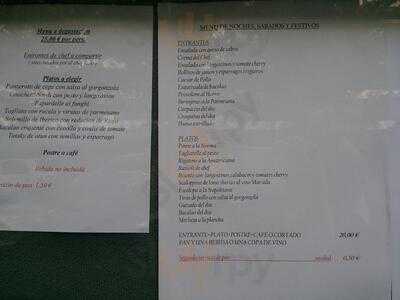 Menu a degustación
25,00 € por pers.
Entrantes de chef a compartir
Platos a elegir
Panzerotti de cepe con salsa al gorgonzola
con pesto y langostinos
Papardelle ai funghi
Tagliata con rucola y virutas de parmesano
Solomillo de Iberico con reduction de
Bacalao crujiente con cebolla y coulis de tomate
de atun con semillas y esparrago
Postre o café
Bebida no incluida
pan 1,50 €
MENU DE NOCHES, SABADOS Y FESTIVOS
ENTRANTES
Ensalada con queso de cabra
Crema del Chef
Ensalada con langostinos y tomate cherry
Rollitos de atun y esparragos trigueros
Caesar de Pollo
Provolone al Horno
Berenjena a la Parmesana
Carpaccio del dia
Croquetas del dia
Huevo
PLATOS
Penne a la Norma
Tagliatelle al pesto
Rigatoni a la Amatriciana
Ravioli de chef
Risotto con langostinos calabacin y tomates cherry
Scalopine de lomo iberico al vino Marsala
Escalope a la Napolitana
Tiras de pollo con salsa al gorgonzola
Guisado del dia
Bacalao del dia
Merluza a la plancha
ENTRANTE+PLATO+POSTRE+CAFÉ O CORTADO 20,00 €
PAN Y UNA BEBIDA O UNA COPA DE VINO
Segundo servicio de pan unidad 0,50 €